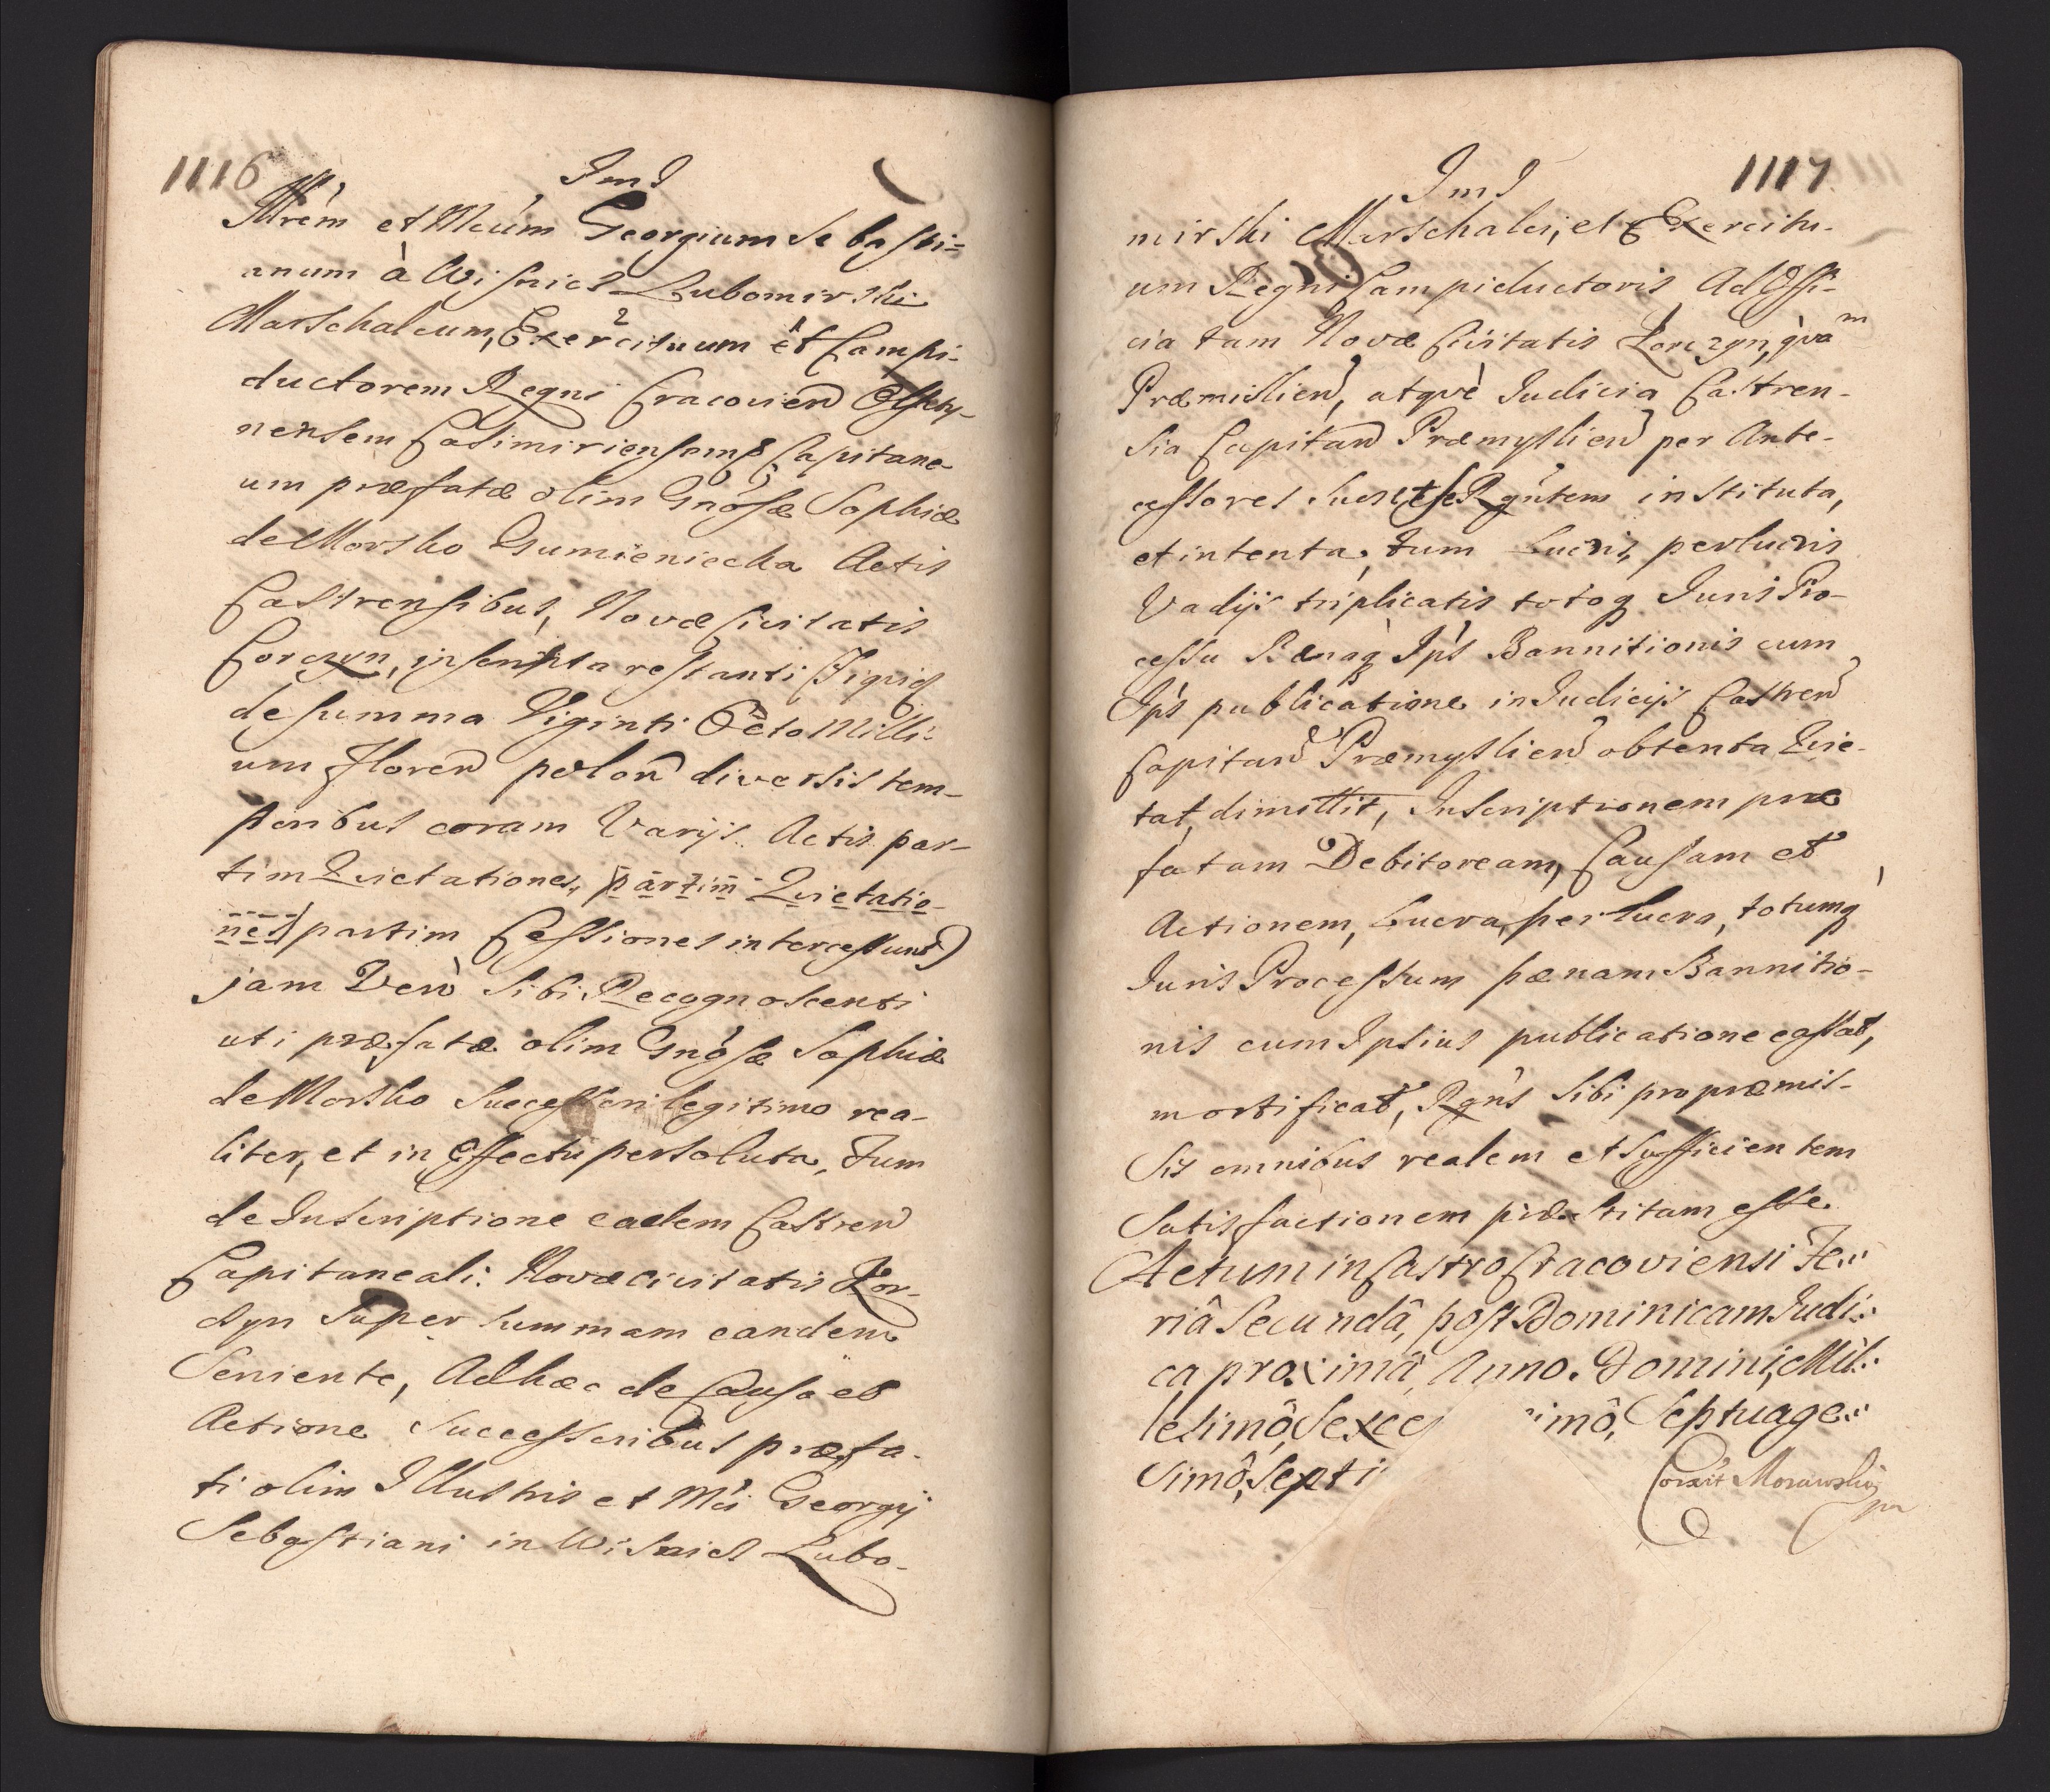 1116
ImJ
Illrem et Mcum Georgium Sebasti=
anum à Wisnicz Lubomirski
Marschalcum, Exercituum et Campi-
ductorem Regni Cracovien
nensem Casimiriensemq Capitane-
um præfatæ olim Gnosæ Sophiæ
de Morsko Gumieniecka Actis
Castrensibus, Novæ Civitatis
Corczyn, inscripta restanti
de summa Viginti Octo Milli-
um Floren polon diversis tem-
poribus coram Varijs Actis par-
tim Qvietationes, partim Qvietatio-
nes partim Cessiones intercessunt)
jam Verò Sibi Recognoscenti
uti præfatæ olim Gnosæ Sophiæ
de Morsko Successori legitimo rea-
liter, et in Effectu persoluta, Tum
de Inscriptione eadem Castren
Capitaneali: Novæ Civitatis Kor-
czyn Super summam eandem
Seniente, Ad hæc de Causa et
Actione Successoribus præfa-
ti olim Illustris et Mci Georgij
Sebastiani in Wisnicz Lubo-
1117
ImJ
mirski Marschalci, et Exercitu-
um Regni Campiductoris Ad Offi-
cia tam Novæ Civitatis Korczyn, qvam
Præmislien, atqvè Iudicia Castren-
sia Capitan Præmyslien per Ante-
cessores Suos, et se Rgntem instituta,
et intenta, tum Lucris, perlucris
Vadijs triplicatis totoq Iuris Pro-
cessu Pænaq Ips Bannitionis cum
Ips publicatione in Iudicijs Castren
Capitan Præmyslien obtenta Qvie-
tat, dimittit, Inscriptionem præ
fatam Debitoream, Causam et
Actionem, Lucra, perlucra, totumq
Iuris Processum pænam Bannitio-
nis cum Ipsius publicatione cassat,
mortificat, Rgns Sibi pro præmis-
sis omnibus realem et Sufficientem
Satisfactionem præstitam esse
Actum in Castro Cracoviensi Fe:
riâ Secundâ, post Dominicam Iudi:
ca proximâ, Anno. Domini, Mil:
lesimô, Sexce imô, Septuage:
simô, Septi
Corexit Morawski